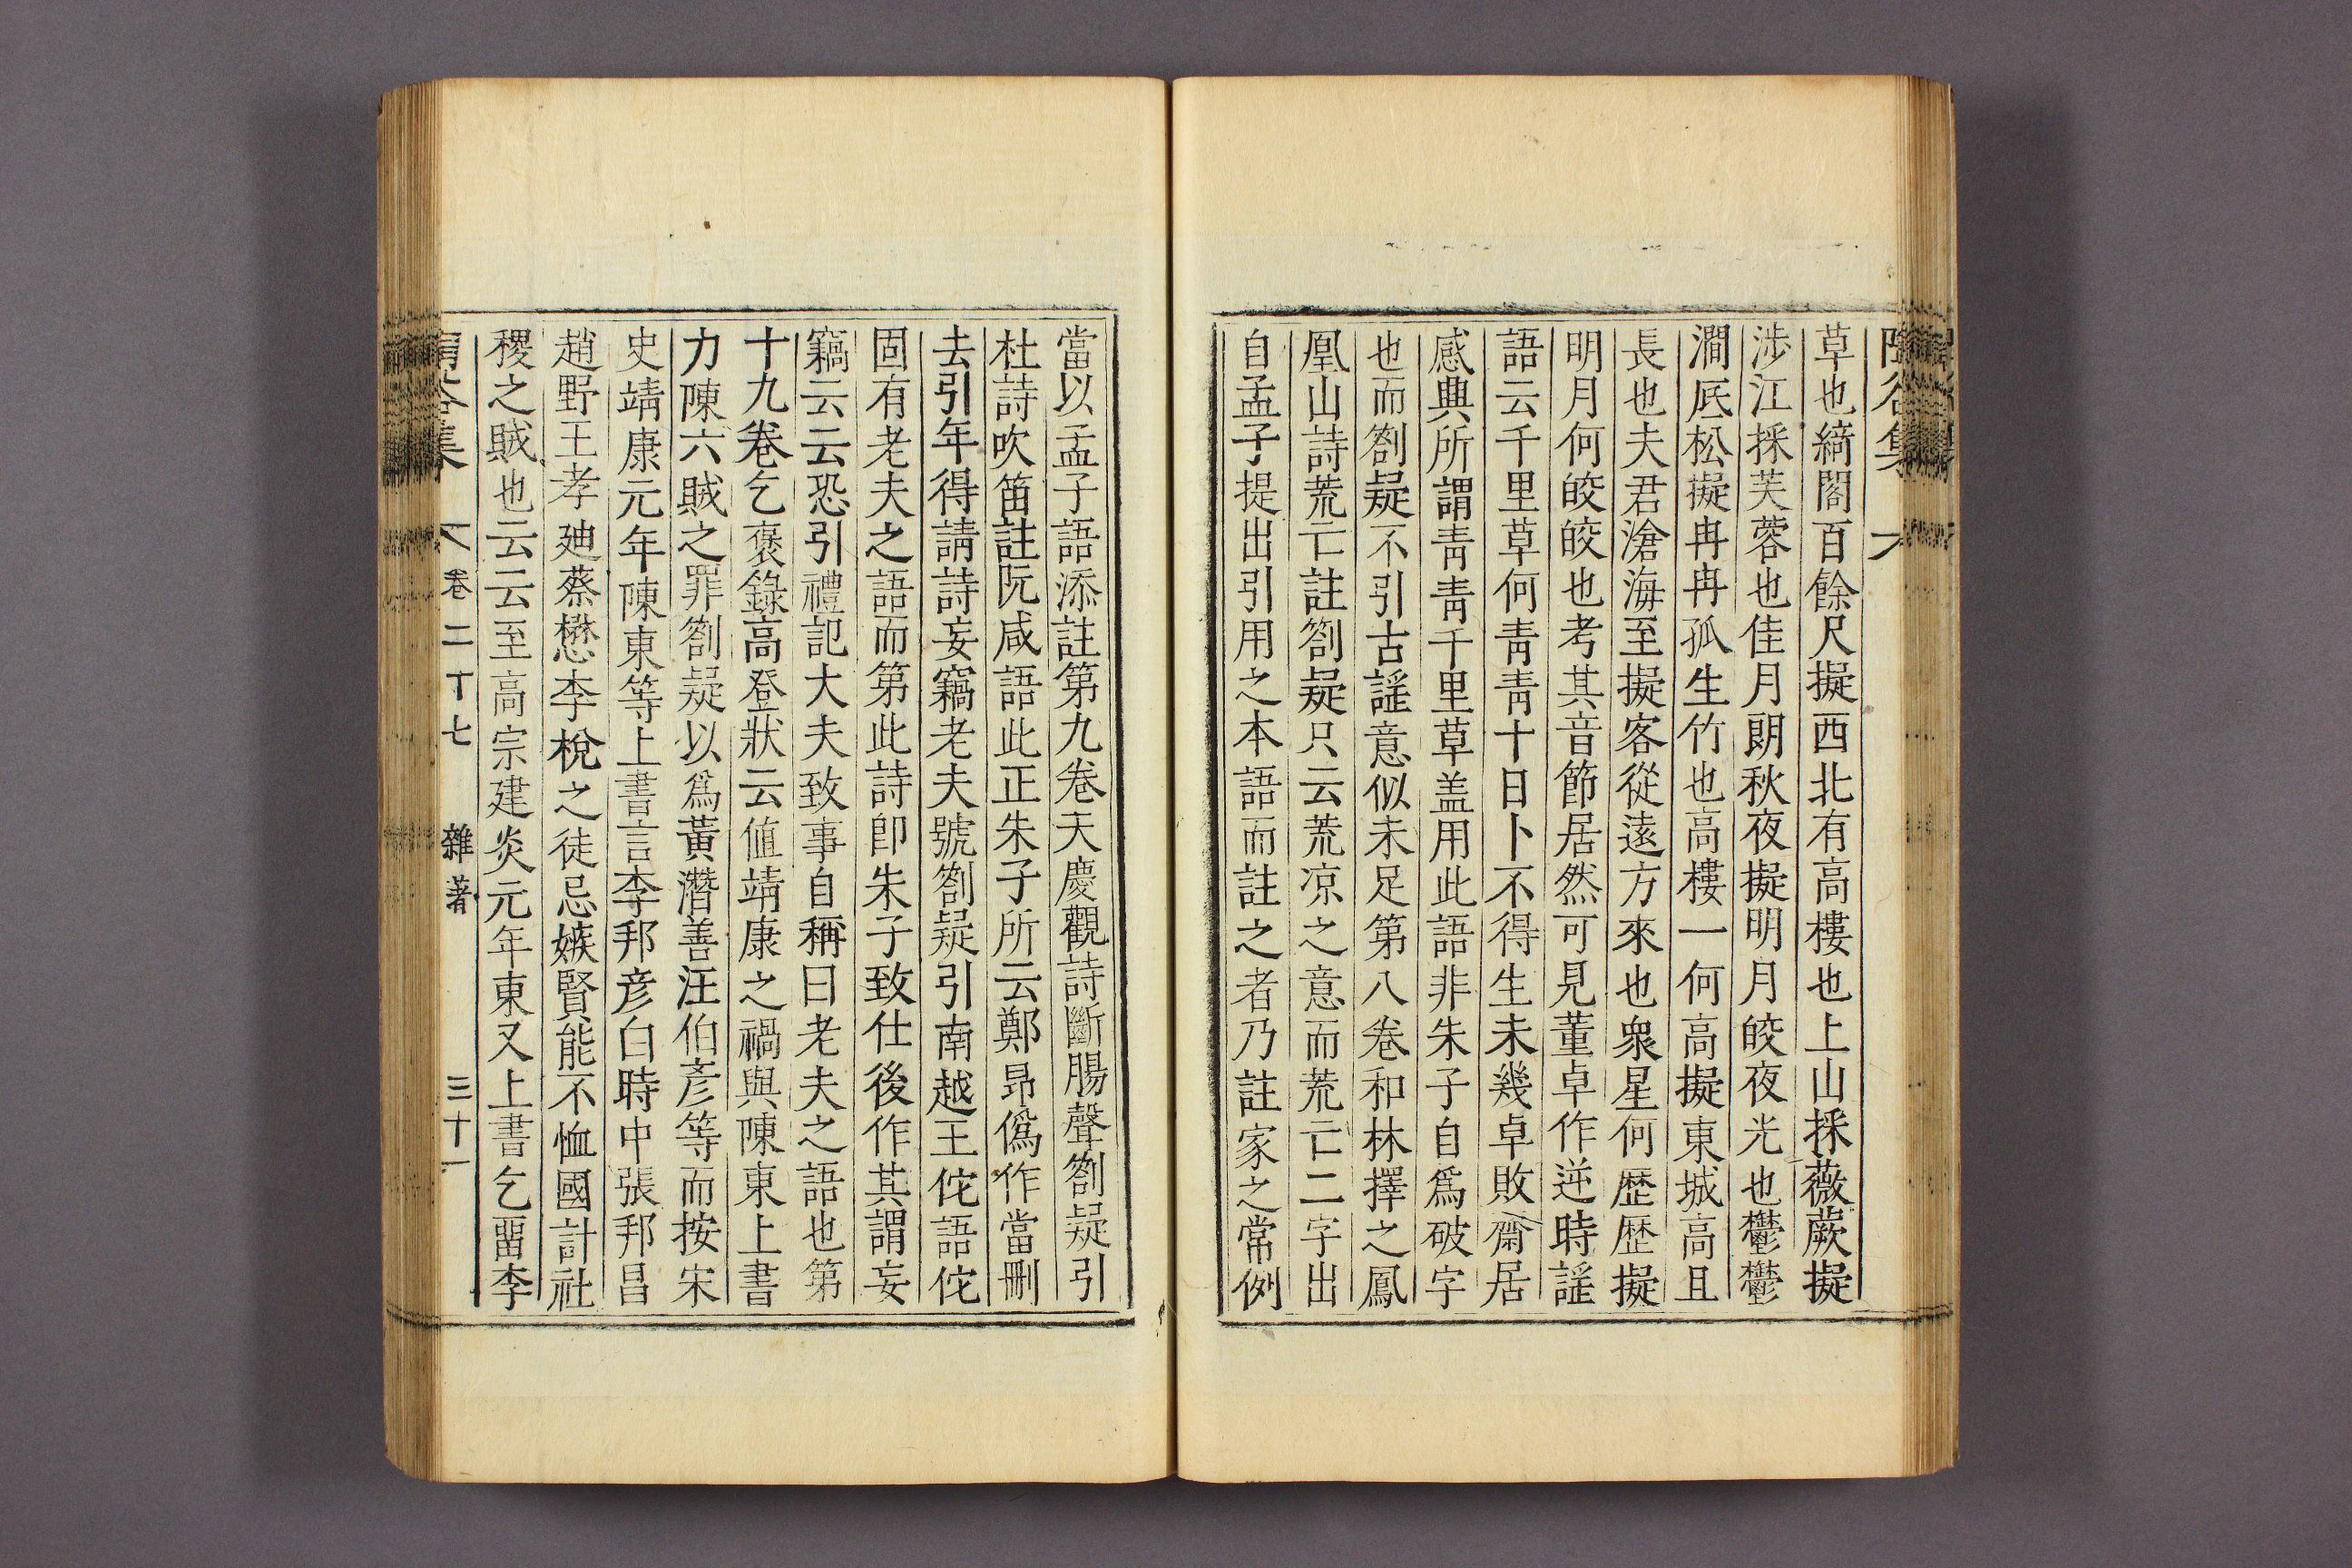 草也綺閣百餘尺擬西北有高樓也上山採薇蕨擬
涉江採芙蓉也佳月朗秋夜擬明月皎夜光也鬱鬱
澗底松擬冉冉孤生竹也高樓一何高擬東城高且
長也夫君滄海至擬客從遠方來也衆星何歷歷擬
明月何皎皎也考其音節居然可見董卓作逆時謠
語云千里草何靑靑十日卜不得生未幾卓敗齋居
感興所謂靑靑千里草盖用此語非朱子自爲破字
也而劄疑不引古謠意似未足第八卷和林擇之鳳
凰山詩荒亡註劄疑只云荒凉之意而荒亡二字出
自孟子提出引用之本語而註之者乃註家之常例
當以孟子語添註第九卷天慶觀詩斷腸聲劄疑引
杜詩吹笛註阮咸語此正朱子所云鄭昻僞作當刪
去引年得請詩妄竊老夫號劄疑引南越王佗語佗
固有老夫之語而第此詩卽朱子致仕後作其謂妄
竊云云恐引禮記大夫致事自稱曰老夫之語也第
十九卷乞褒錄高登狀云値靖康之禍與陳東上書
力陳六賊之罪劄疑以爲黃潛善汪伯彥等而按宋
史靖康元年陳東等上書言李邦彥白時中張邦昌
趙野王孝廸蔡懋李梲之徒忌嫉賢能不恤國計社
稷之賊也云云至高宗建炎元年東又上書乞畱李
卷二十七 雜著 三十一